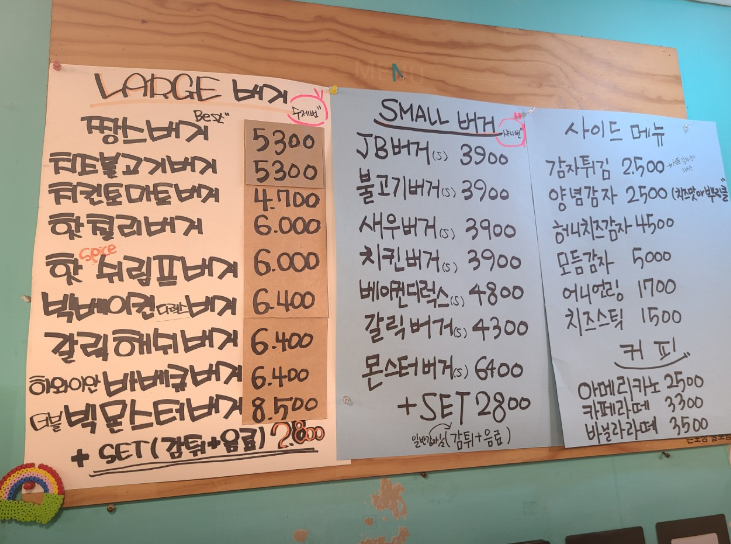 MENU
LARGE 버거
수제번
Best"
짱스버거 5300
치즈불고기버거 5300
치킨토마토버거 4.700
핫칠리버거 6.000
Spice
핫 쉬림프버거 6.000
빅베이컨 디럭스버거 6.400
갈릭해쉬버거 6.400
하와이안 바베큐버거 6.400
더블 빅몬스터버거 8.500
+ SET (감튀+음료) 2.800
SMALL 버거
JB버거(S) 3900
불고기버거(S) 3900
새우버거(S) 3900
치킨버거(S) 3900
베이컨디럭스(S) 4800
갈릭버거(S) 4300
몬스터버거(S) 6400
+ SET 2800
(감튀+음료)
사이드 메뉴
감자튀김 2.500
양념감자 2500
허니치즈감자 4500
모듬감자 5000
어니언링 1700
치즈스틱 1500
커피
아메리카노 2500
카페라떼 3300
바닐라라떼 3500